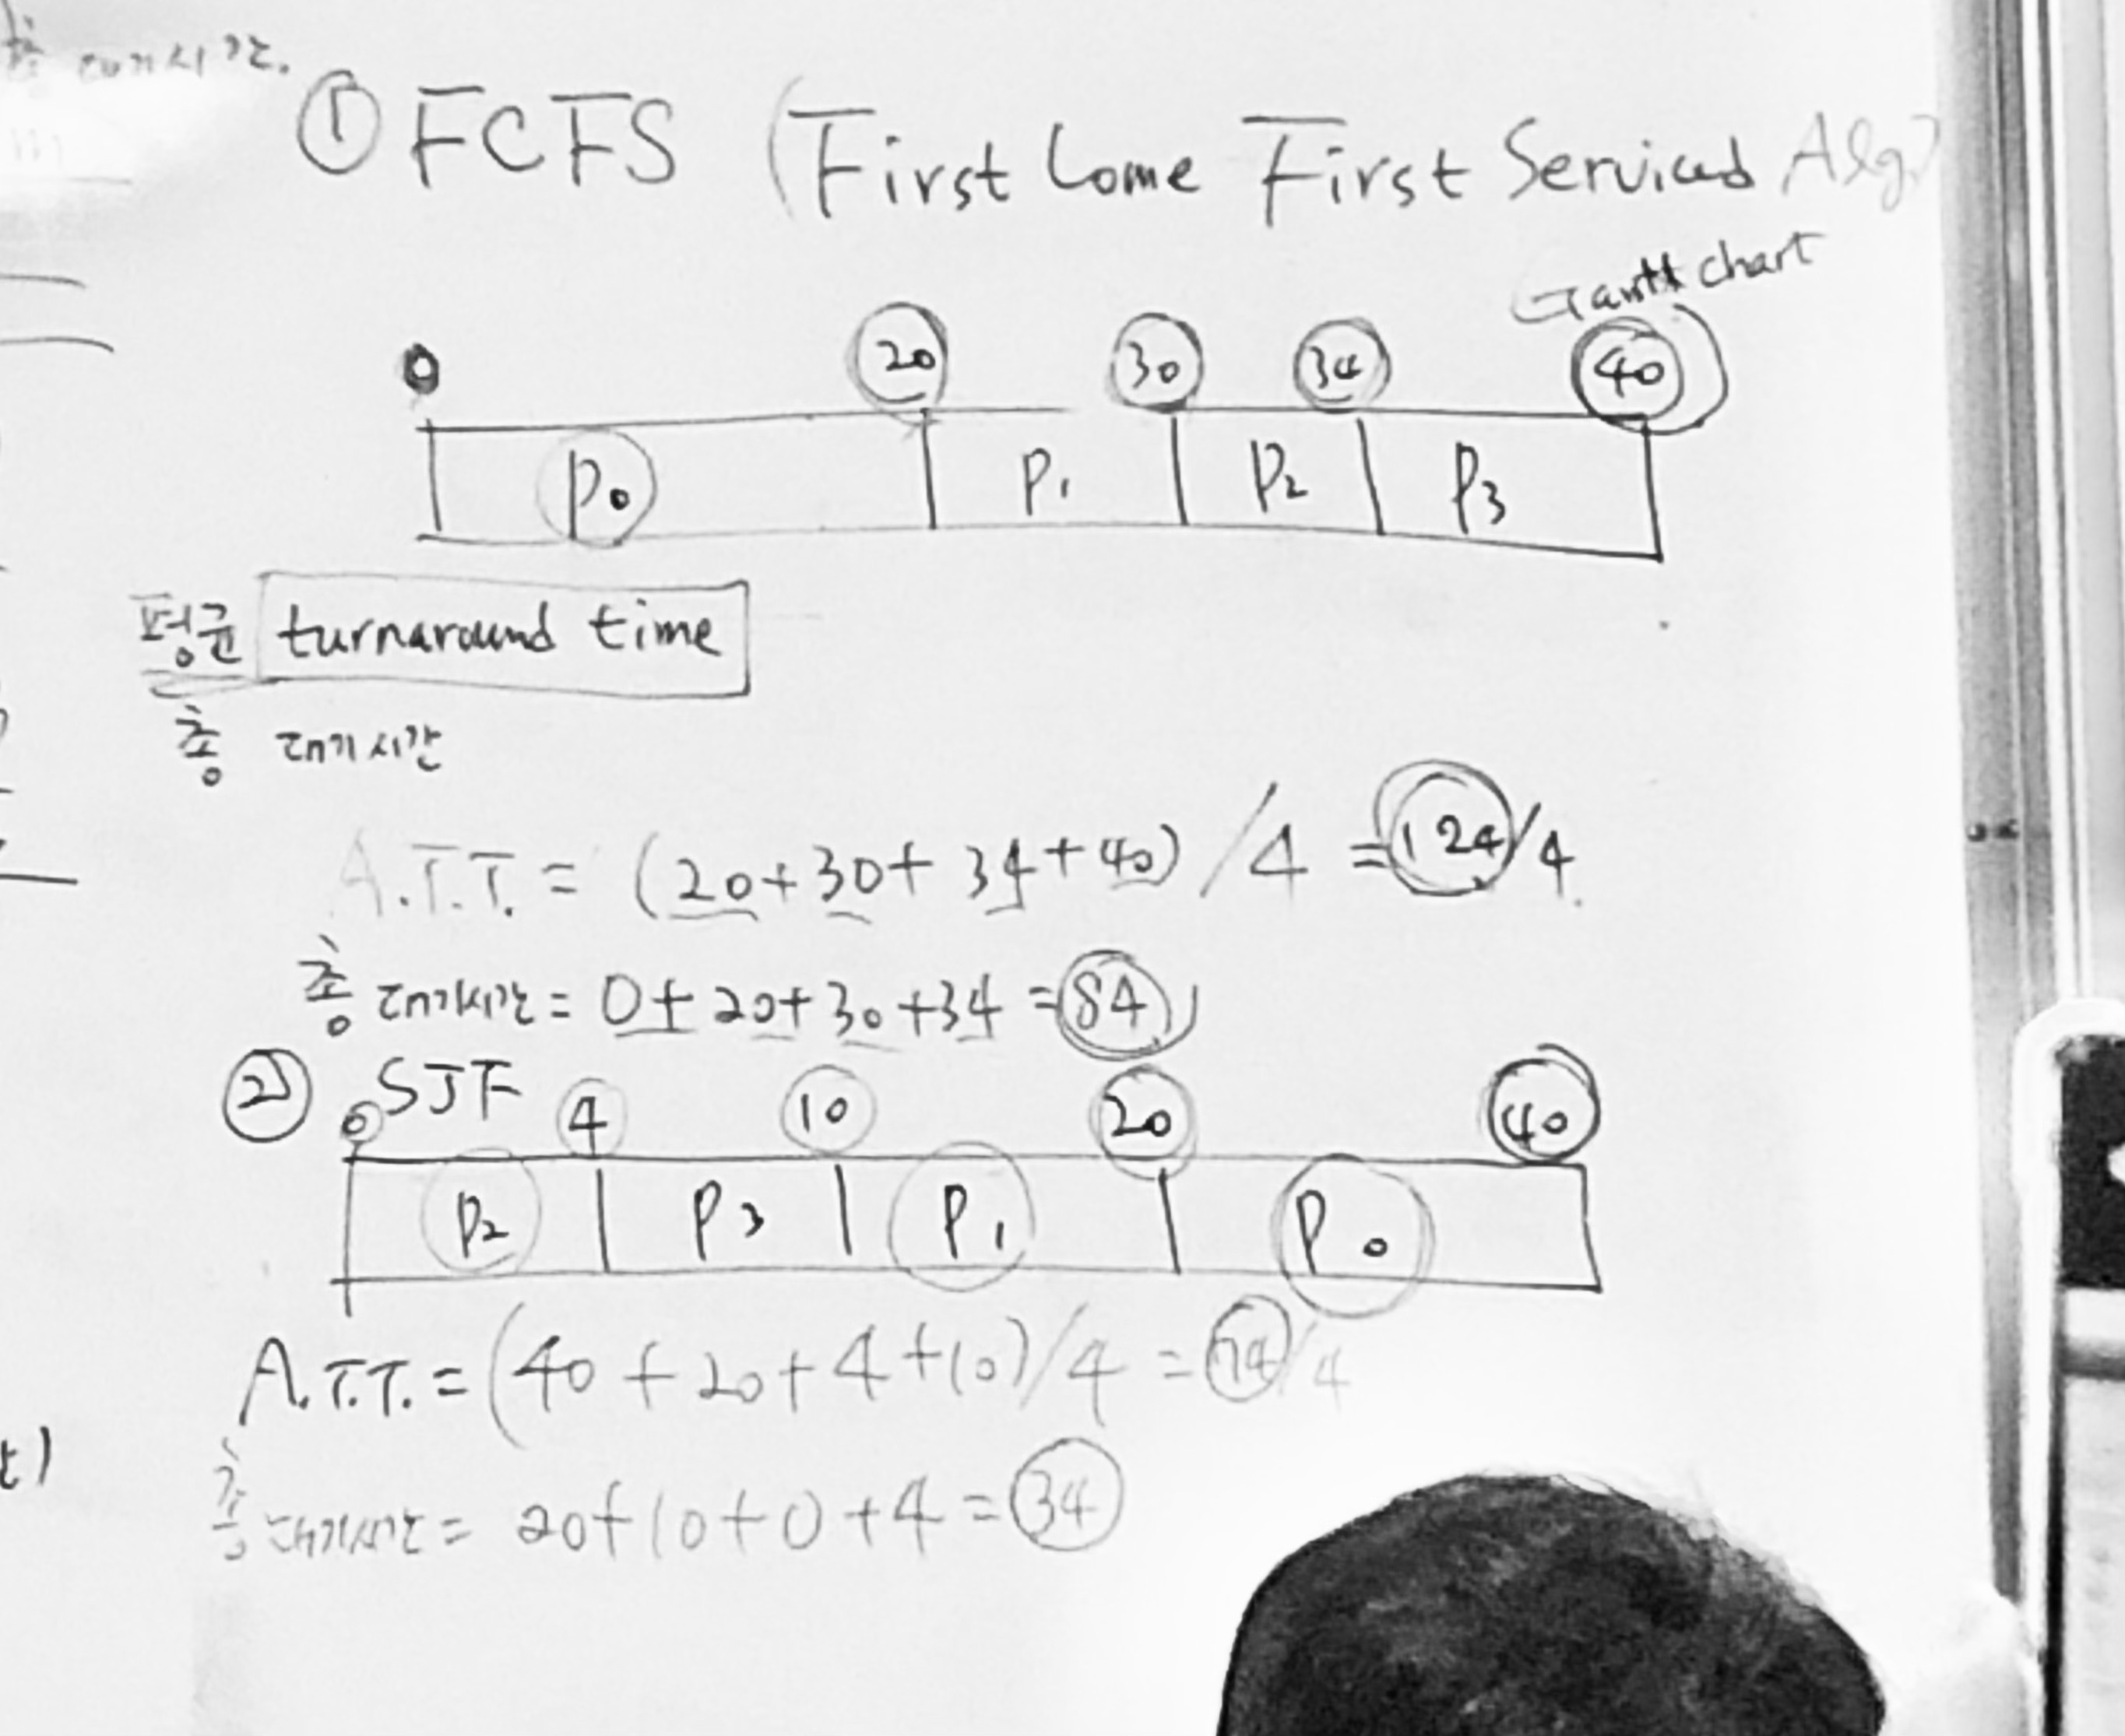 총 대기시간.
① FCFS (First Come First Serviced Alg.)
Gantt chart
0 20 30 34 40
P0 P1 P2 P3
평균 turnaround time
총 대기시간
A.T.T. = (20+30+34+40)/4 = 124/4.
총 대기시간 = 0+20+30+34 = 84
② SJF
0 4 10 20 40
P2 P3 P1 P0
A.T.T. = (40+20+4+10)/4 = 74/4
총 대기시간 = 20+10+0+4 = 34